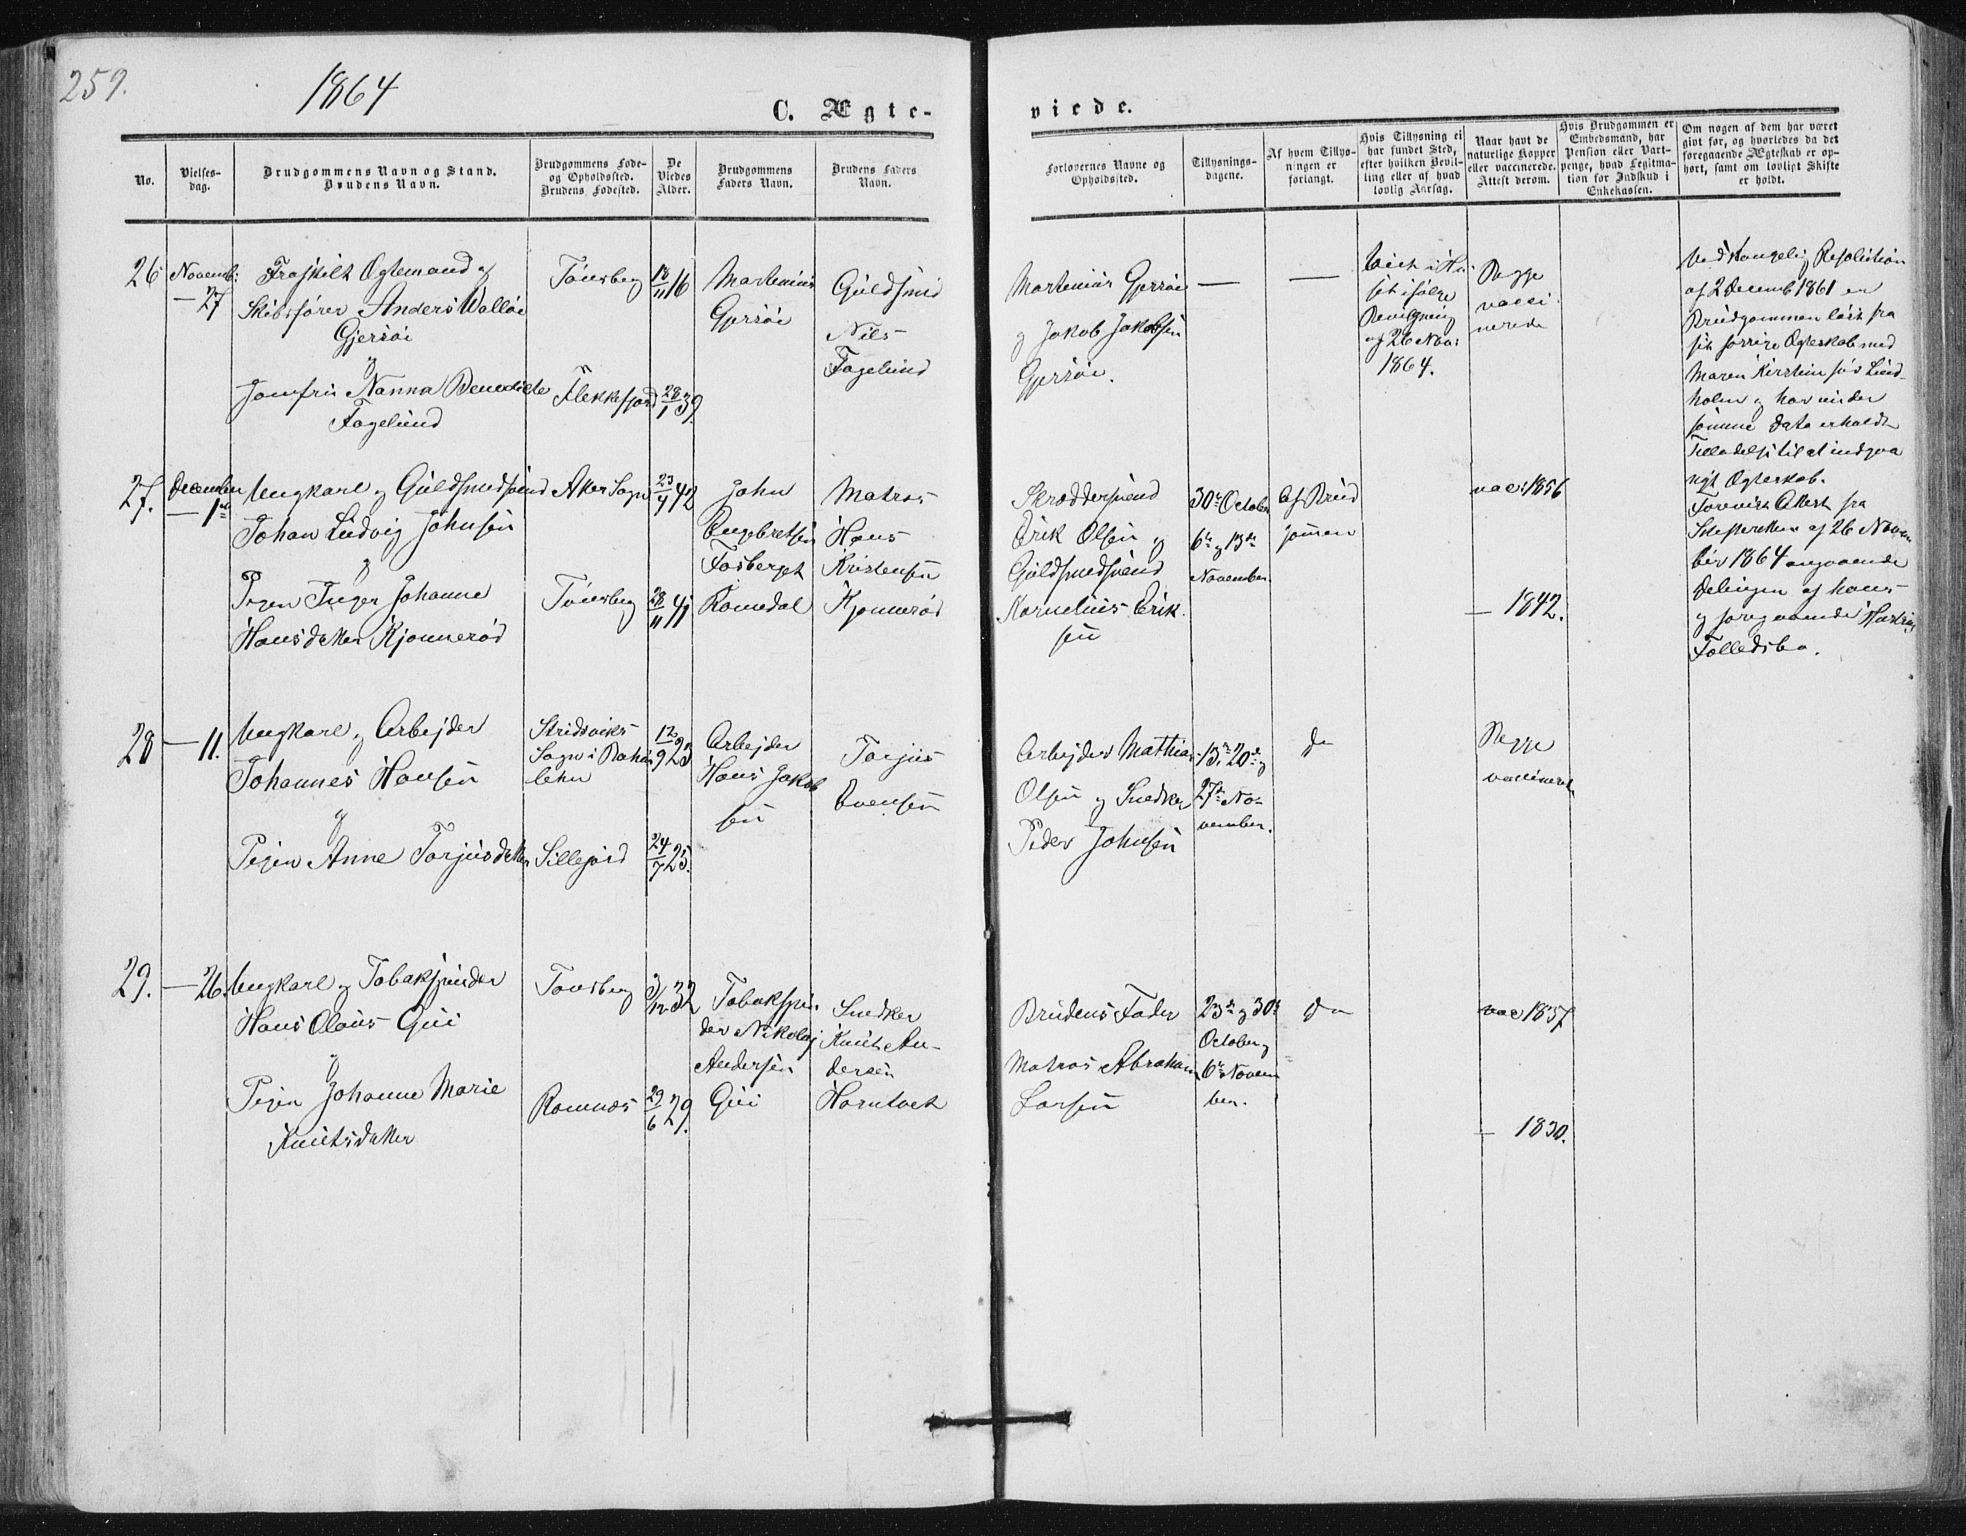 259.
1864
C. Ægte-
viede.
No.
Vielses-
dag.
Brudgommens Navn og Stand.
Brudens Navn.
Brudgommens Føde-
og Opholdssted.
Brudens Fødested.
De
Viedes
Alder.
Brudgommens
Faders Navn.
Brudens Faders
Navn.
Forlovernes Navne og
Opholdssted.
Tillysnings-
dagene.
Af hvem Tillys-
ningen er
forlangt.
Hvis Tillysning ei
har fundet Sted,
efter hvilken Bevil-
ling eller af hvad
lovlig Aarsag.
Naar havt de
naturlige Kopper
eller vaccinerede.
Attest derom.
Hvis Brudgommen er
Embedsmand, har
Pension eller Vart-
penge, hvad Legitma-
tion for Indskud i
Enkekassen.
Om nogen af dem har været
givt før, og hvorledes da det
foregaaende Ægteskab er op-
hørt, samt om lovligt Skifte
er holdt.
26
Novemb:
— 27
Fraskilt Ægtemand og
Skibsfører Anders Walløe
Gjersøi
og
Jomfru Nanna Benedicte
Fagelund
Tönsberg
Flekkefjord
18/11 16
28/1 39.
Martinius
Gjersøi
Guldsmed
Nils
Fagelund
Martinius Gjersøe
og Jakob Jakobsen
Gjersøe.
—
—
Viet i Hu-
set ifølge
Bevilgning
af 26 Nov:
1864.
Begge
vacci-
nerede
Ved Kongelig Resolution
af 2 Decemb 1861 er
Brudgommen løst fra
sit forrige Ægteskab med
Maren Kirstein fød Lind-
holm og har under
samme Dato erholdt
Tilladelse til at indgaa
nyt Ægteskab.
Forevist Attest fra
Skifteretten af 26 Novem
ber 1864 angaaende
Delingen af hans
og foregaaende Hustrus
Fælledsbo.
27.
December
— 1ste
Ungkarl og Guldsmedsvend
Johan Ludvig Johnsen
og
Pigen Inger Johanne
Hansdatter Kjonnerød
Aker Sogn
Tönsberg
23/4 42
28/11 41
John
Engebretsen
Fosberget
Romedal
Matros
Hans
Kristensen
Kjonnerød
Skræddersvend
Erik Olsen og
Guldsmedsvend
Kornelius Erik-
sen
30te October
6te og 13de
November.
Af Brud
gommen
vac: 1856
— 1842.
28
— 11.
Ungkarl og Arbejder
Johannes Hansen
og
Pigen Anne Torjusdatter
Stridsviks
Sogn i Bahus
lehn
Sillejord
12/9 23
24/7 25.
Arbejder
Hans Jakob
sen
Torjus
Evensen
Arbejder Mathias
Olsen og Snedker
Peder Johnsen
13de, 20de og
27de No-
vember.
do
Begge
vaccineret
29.
— 26.
Ungkarl og Tobakspinder
Hans Olaus Gui
og
Pigen Johanne Marie
Knutsdatter
Tönsberg
Ramnæs
3/12 32
29/6 29.
Tobakspin
der Nikolaj
Andersen
Gui
Snedker
Knut An-
dersen
Horntvet
Brudens Fader
Matros Abraham
Larsen
23de og 30te
October og
6te Novem
ber.
do
vac 1837
— 1830.